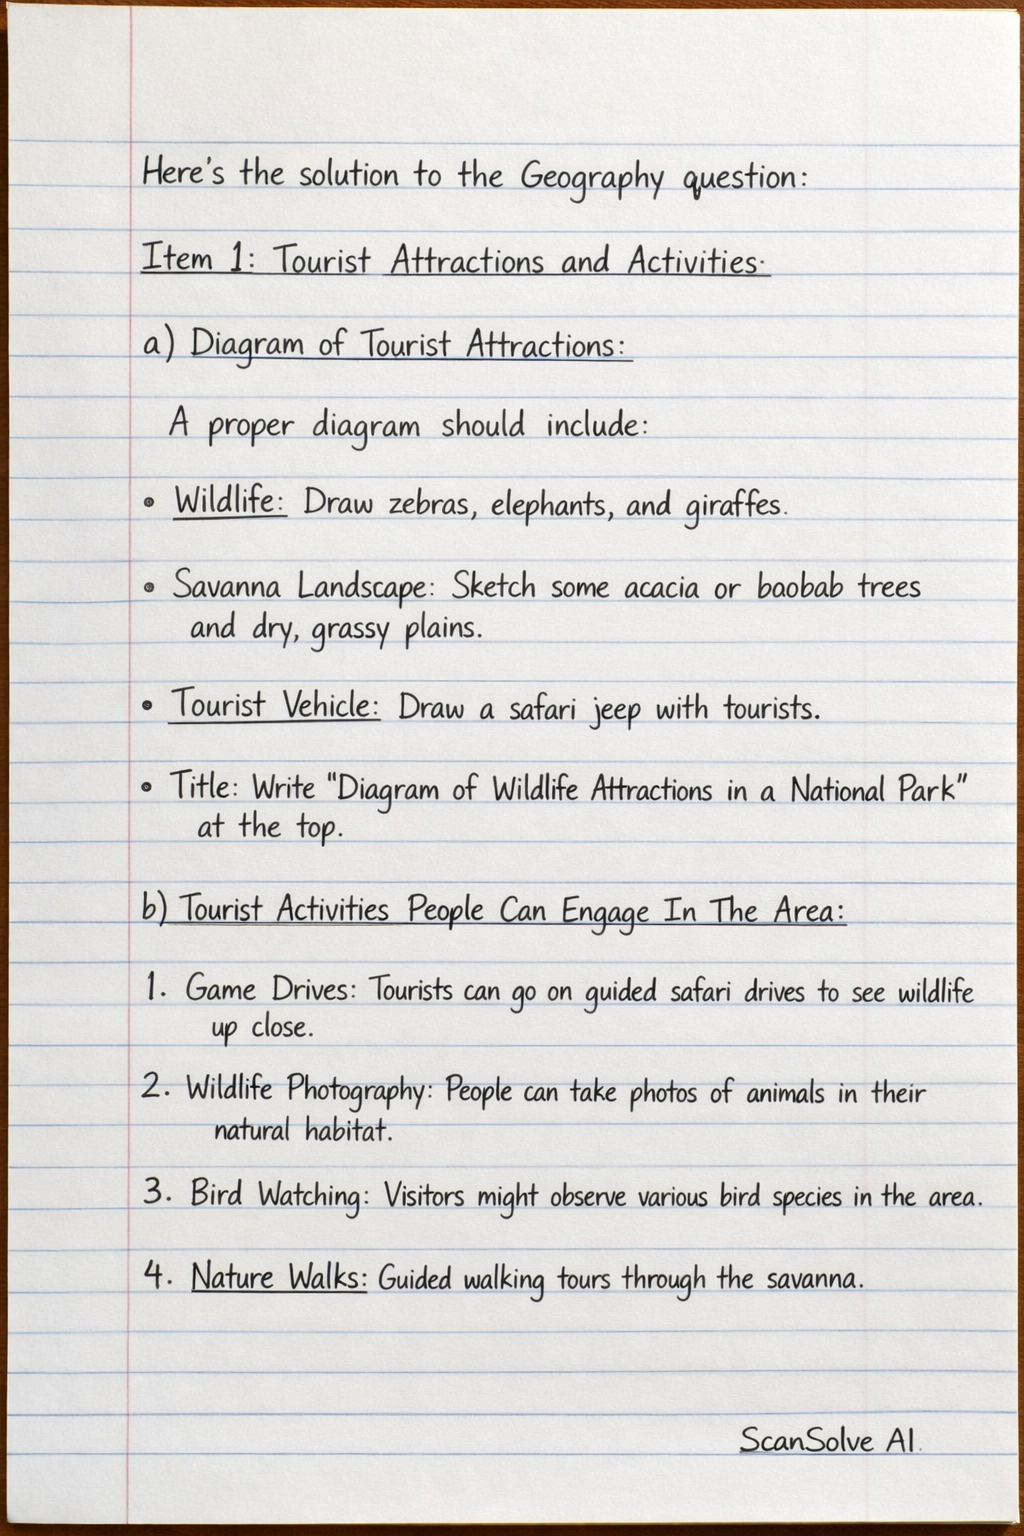 Here's the solution to the Geography question:
Item 1: Tourist Attractions and Activities.
a) Diagram of Tourist Attractions:
A proper diagram should include:
• Wildlife: Draw zebras, elephants, and giraffes.
• Savanna Landscape: Sketch some acacia or baobab trees
and dry, grassy plains.
• Tourist Vehicle: Draw a safari jeep with tourists.
• Title: Write "Diagram of Wildlife Attractions in a National Park"
at the top.
b) Tourist Activities People Can Engage In The Area:
1. Game Drives: Tourists can go on guided safari drives to see wildlife
up close.
2. Wildlife Photography: People can take photos of animals in their
natural habitat.
3. Bird Watching: Visitors might observe various bird species in the area.
4. Nature Walks: Guided walking tours through the savanna.
ScanSolve AI.